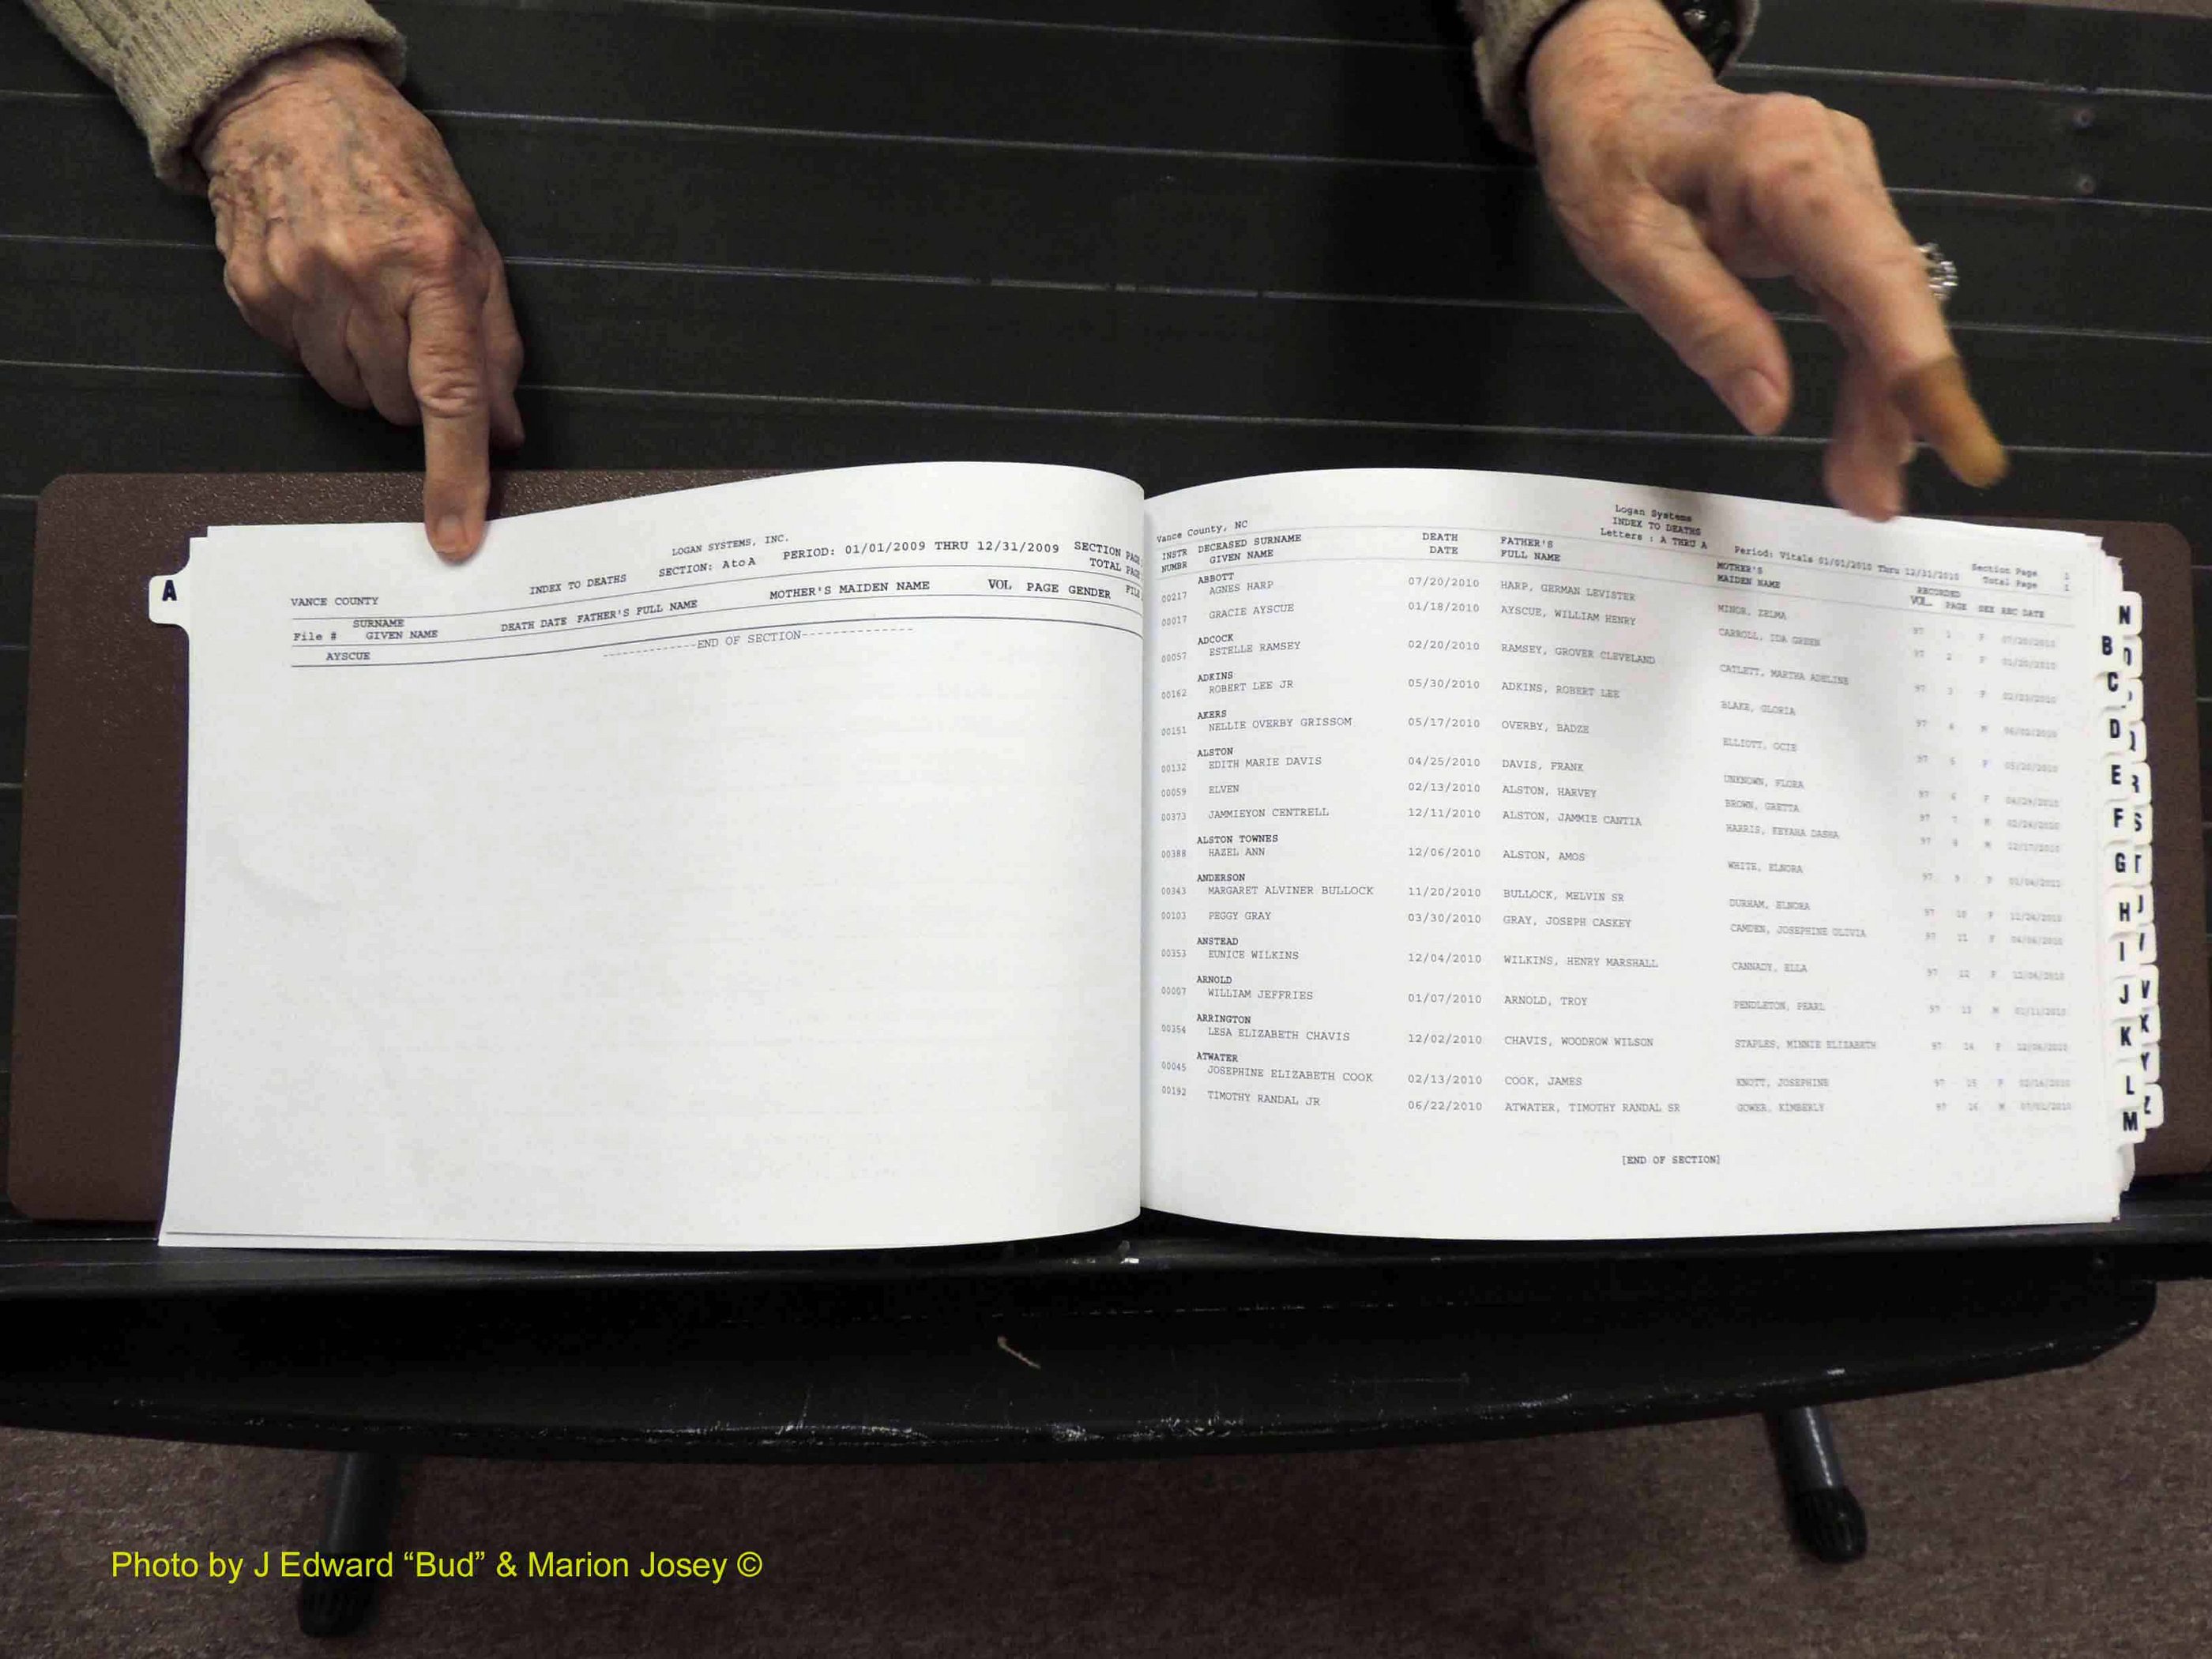 A
LOGAN SYSTEMS, INC.
VANCE COUNTY INDEX TO DEATHS SECTION: A to A PERIOD: 01/01/2009 THRU 12/31/2009 SECTION PAGE
TOTAL PAGE
SURNAME
File # GIVEN NAME DEATH DATE FATHER'S FULL NAME MOTHER'S MAIDEN NAME VOL PAGE GENDER FILE
AYSCUE
------------------END OF SECTION------------------
Logan Systems
Vance County, NC INDEX TO DEATHS
Letters : A THRU A Period: Vitals 01/01/2010 Thru 12/31/2010 Section Page 1
Total Page 1
INSTR DECEASED SURNAME DEATH FATHER'S MOTHER'S RECORDED
NUMBR GIVEN NAME DATE FULL NAME MAIDEN NAME VOL PAGE SEX REC DATE
ABBOTT
00217 AGNES HARP 07/20/2010 HARP, GERMAN LEVISTER MINOR, ZELMA 97 1 F 07/20/2010
00017 GRACIE AYSCUE 01/18/2010 AYSCUE, WILLIAM HENRY CARROLL, IDA GREEN 97 2 F 01/20/2010
ADCOCK
00057 ESTELLE RAMSEY 02/20/2010 RAMSEY, GROVER CLEVELAND CATLETT, MARTHA ADELINE 97 3 F 02/23/2010
ADKINS
00162 ROBERT LEE JR 05/30/2010 ADKINS, ROBERT LEE BLAKE, GLORIA 97 4 M 06/02/2010
AKERS
00151 NELLIE OVERBY GRISSOM 05/17/2010 OVERBY, BADZE ELLIOTT, OCIE 97 5 F 05/20/2010
ALSTON
00132 EDITH MARIE DAVIS 04/25/2010 DAVIS, FRANK UNKNOWN, FLORA 97 6 F 04/29/2010
00059 ELVEN 02/13/2010 ALSTON, HARVEY BROWN, GRETTA 97 7 M 02/24/2010
00373 JAMMIEYON CENTRELL 12/11/2010 ALSTON, JAMMIE CANTIA HARRIS, KEYAHA DASHA 97 8 M 12/17/2010
ALSTON TOWNES
00388 HAZEL ANN 12/06/2010 ALSTON, AMOS WHITE, ELNORA 97 9 F 01/04/2011
ANDERSON
00343 MARGARET ALVINER BULLOCK 11/20/2010 BULLOCK, MELVIN SR DURHAM, ELNORA 97 10 F 11/24/2010
00103 PEGGY GRAY 03/30/2010 GRAY, JOSEPH CASKEY CAMDEN, JOSEPHINE OLIVIA 97 11 F 04/06/2010
ANSTEAD
00353 EUNICE WILKINS 12/04/2010 WILKINS, HENRY MARSHALL CANNADY, ELLA 97 12 F 12/06/2010
ARNOLD
00007 WILLIAM JEFFRIES 01/07/2010 ARNOLD, TROY PENDLETON, PEARL 97 13 M 01/11/2010
ARRINGTON
00354 LESA ELIZABETH CHAVIS 12/02/2010 CHAVIS, WOODROW WILSON STAPLES, MINNIE ELIZABETH 97 14 F 12/06/2010
ATWATER
00045 JOSEPHINE ELIZABETH COOK 02/13/2010 COOK, JAMES KNOTT, JOSEPHINE 97 15 F 02/16/2010
00192 TIMOTHY RANDAL JR 06/22/2010 ATWATER, TIMOTHY RANDAL SR GOWER, KIMBERLY 97 16 M 07/01/2010
[END OF SECTION]
N
B
C
D
E
F S
G T
H
I
J V
K
L Y
M Z
Photo by J Edward “Bud” & Marion Josey ©